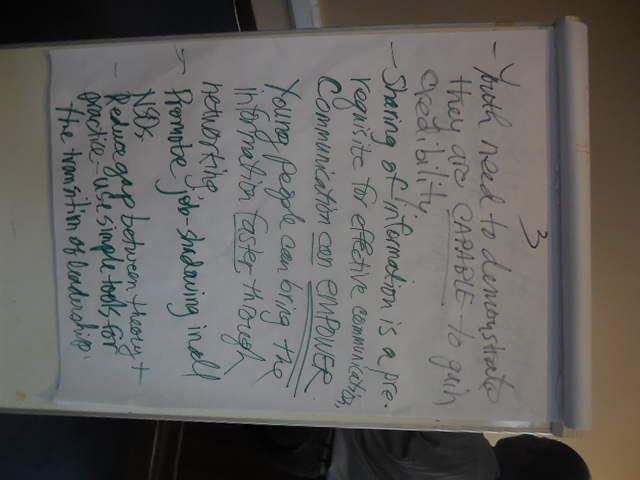 3
- Youth need to demonstrate
they are CAPABLE to gain
credibility
- Sharing of information is a pre-
requisite for effective communication,
Communication can EMPOWER
Young people can bring the
information faster through
networking
- Promote job-shadowing in all
NSOs.
- Reduce gap between theory +
practice - use simple tools for
the transition of leadership.